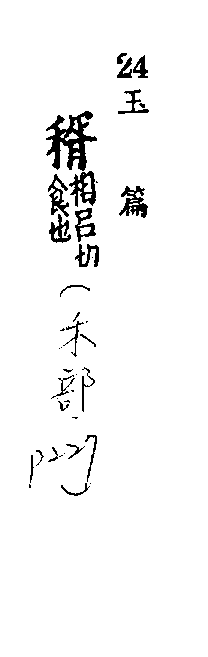 24
玉篇
稰相呂切
食也
(禾部.
p227)